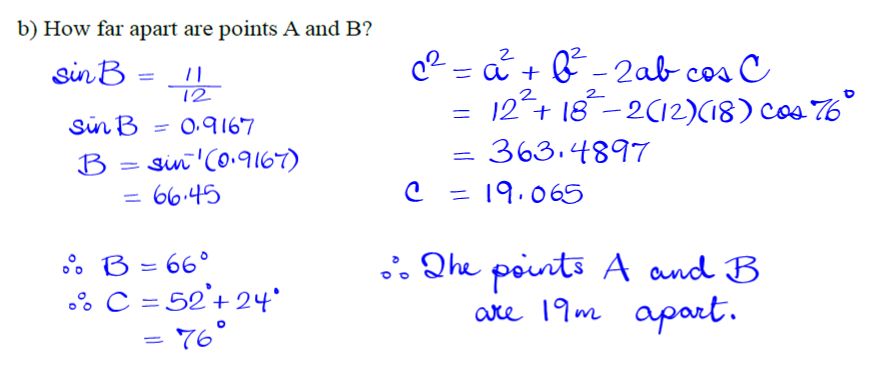 b) How far apart are points A and B?
sin B = 11/12
sin B = 0.9167
B = sin⁻¹(0.9167)
= 66.45
∴ B = 66°
∴ C = 52° + 24°
= 76°
c² = a² + b² - 2ab cos C
= 12² + 18² - 2(12)(18) cos 76°
= 363.4897
c = 19.065
∴ The points A and B
are 19m apart.